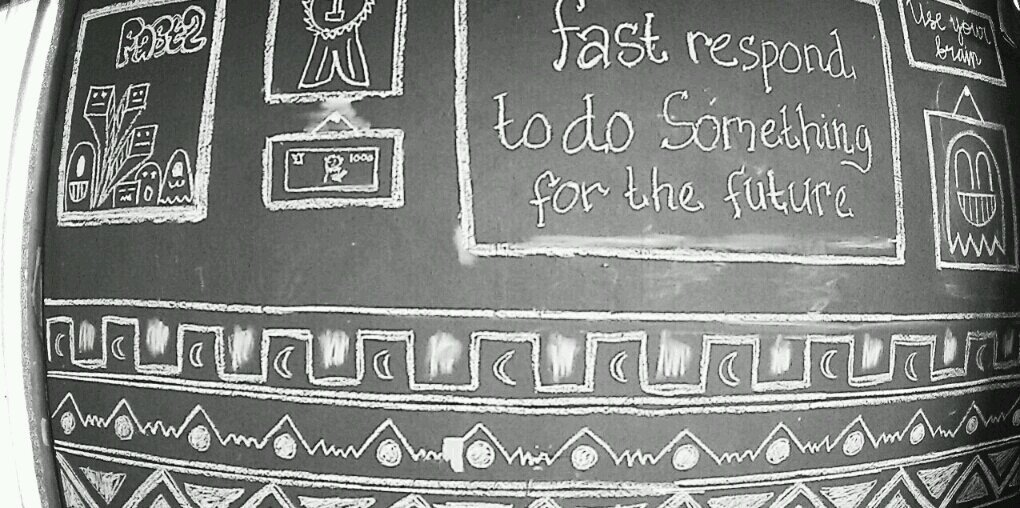 fast respond,
to do Something
for the future
Use your
brain
1
1000